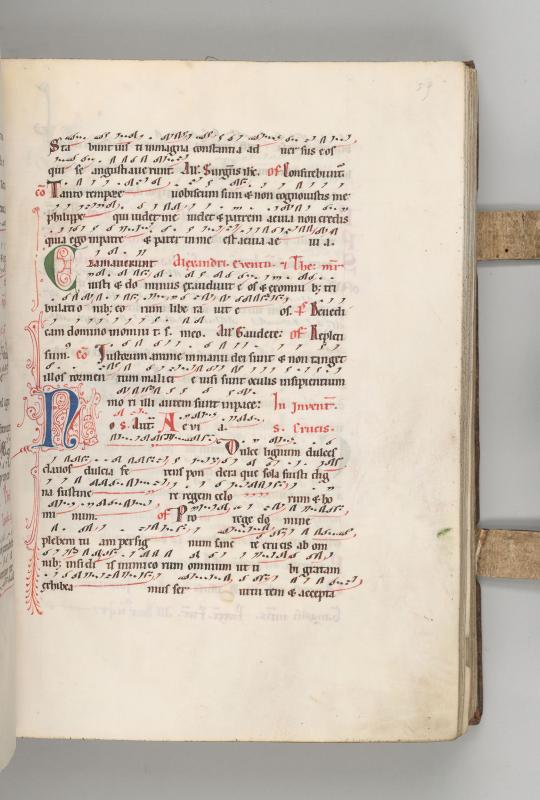 59
Sta bunt iusti in magna constantia ad uersus eos
qui se angustiauerunt. All. Surgens ihc. of Confitebunt.
co Tanto tempore uobiscum sum & non cognouistis me
philippe qui uidet me uidet & patrem aeuia non credis
quia ego in patre & pater in me est aeuia ae ui a.
Clamauerunt Alexandri. Euenti. & The. mr
iusti & do minus exaudiuit e os & ex omni b; tri
bulatio nib; eo rum libe ra uit e os. ps Benedi
cam domino in omni t. s. meo. All Gaudete. of Repleti
sum. co Iustorum anime in manu dei sunt & non tanget
illos tormen tum malici e uisi sunt oculis insipientium
mo ri illi autem sunt in pace. In Inuent.
N o s. aut. A e ui a. s. Crucis.
Dulce lignum dulces
clauos dulcia fe rens pon dera que sola fuisti dig
na sustine re regem celo rum & do
mi num. of Pro tege do mine
plebem tu am per sig num sanc te crucis ab om
nib; insidi is inimico rum omnium ut ti bi gratam
exhibea mus ser uitutem & accepta